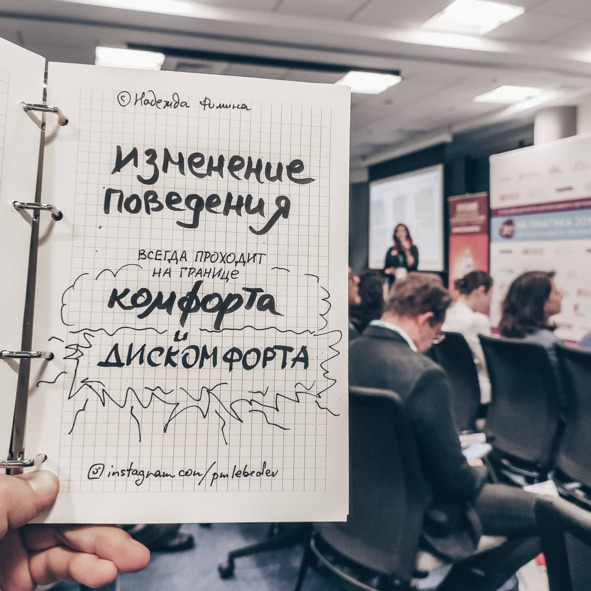 © Надежда Фомина
изменение
поведения
ВСЕГДА ПРОХОДИТ
НА ГРАНИЦЕ
комфорта
и
ДИСКОМФОРТА
instagram.com/pmlebedev
ПРАКТИКА